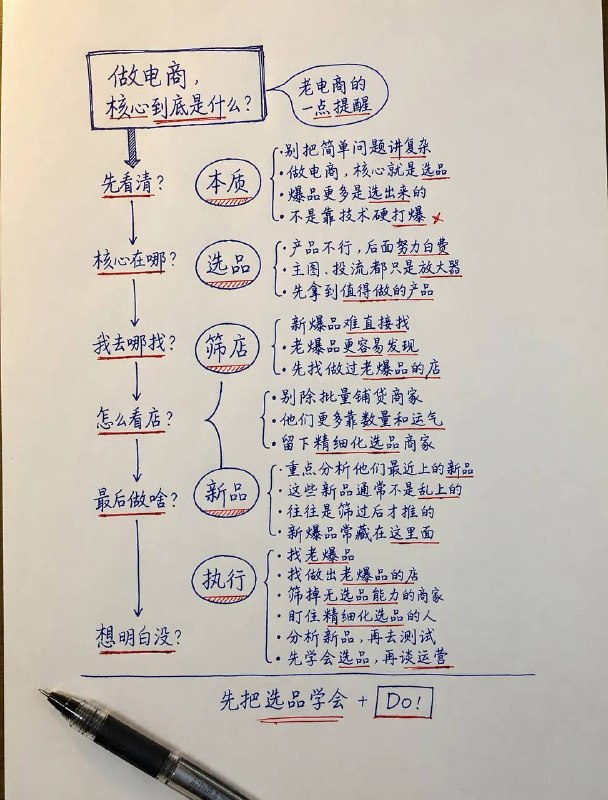 做电商，
核心到底是什么？
老电商的
一点提醒
先看清？
本质
·别把简单问题讲复杂
·做电商，核心就是选品
·爆品更多是选出来的
·不是靠技术硬打爆 ✗
核心在哪？
选品
·产品不行，后面努力白费
·主图、投流都只是放大器
·先拿到值得做的产品
我去哪找？
筛店
新爆品难直接找
·老爆品更容易发现
·先找做过老爆品的店
怎么看店？
·别除批量铺贷商家
·他们更多靠数量和运气
·留下精细化选品商家
最后做啥？
新品
·重点分析他们最近上的新品
·这些新品通常不是乱上的
·往往是筛过后才推的
·新爆品常藏在这里面
执行
·找老爆品
·找做出老爆品的店
·筛掉无选品能力的商家
·盯住精细化选品的人
·分析新品，再去测试
·先学会选品，再谈运营
想明白没？
先把选品学会 + Do!